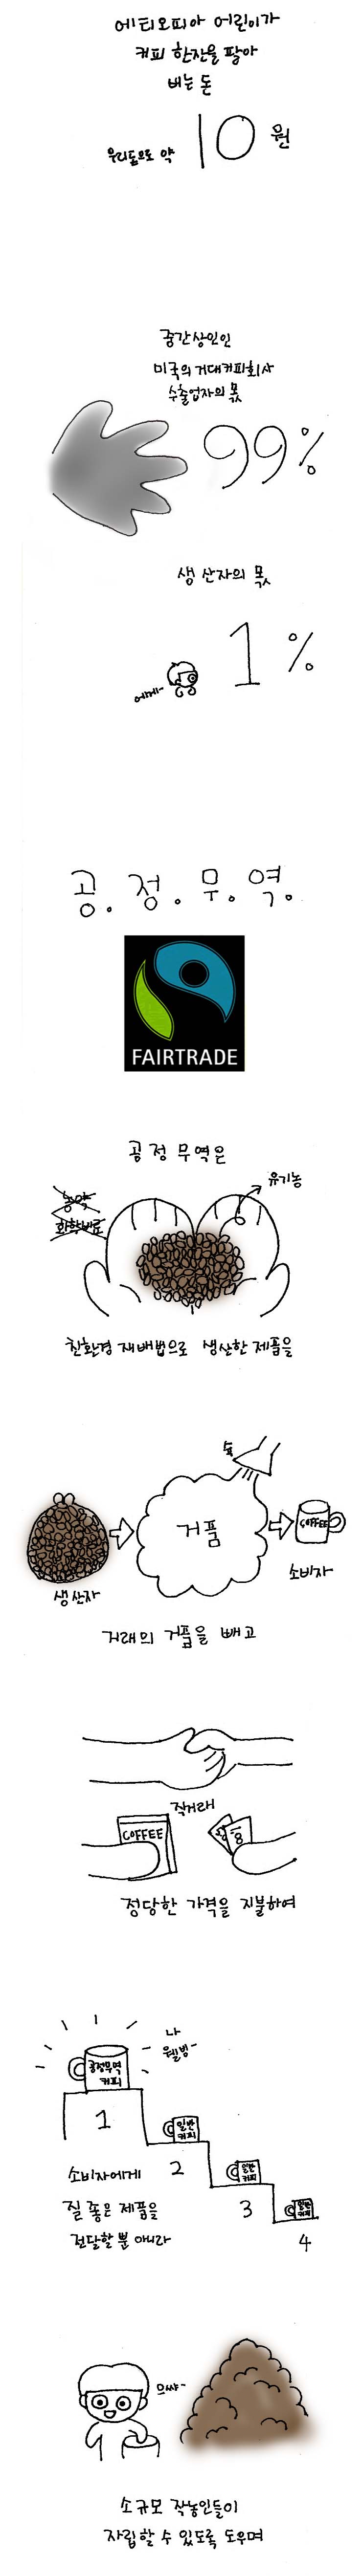 에티오피아 어린이가
커피 한잔을 팔아
버는 돈
우리돈으로 약 10 원
중간상인인
미국의 거대커피회사
수출업자의 몫
99%
생산자의 몫
1%
에게~
공. 정. 무. 역.
FAIRTRADE
공정 무역은
농약
화학비료
유기농
친환경 재배법으로 생산한 제품을
슉
거품
COFFEE
생산자
소비자
거래의 거품을 빼고
직거래
COFFEE
8
정당한 가격을 지불하여
나
웰빙~
공정무역
커피
1
일반
커피
2
일반
커피
3
일반
커피
4
소비자에게
질 좋은 제품을
전달할 뿐 아니라
으쌰~
소규모 작농인들이
자립할 수 있도록 도우며